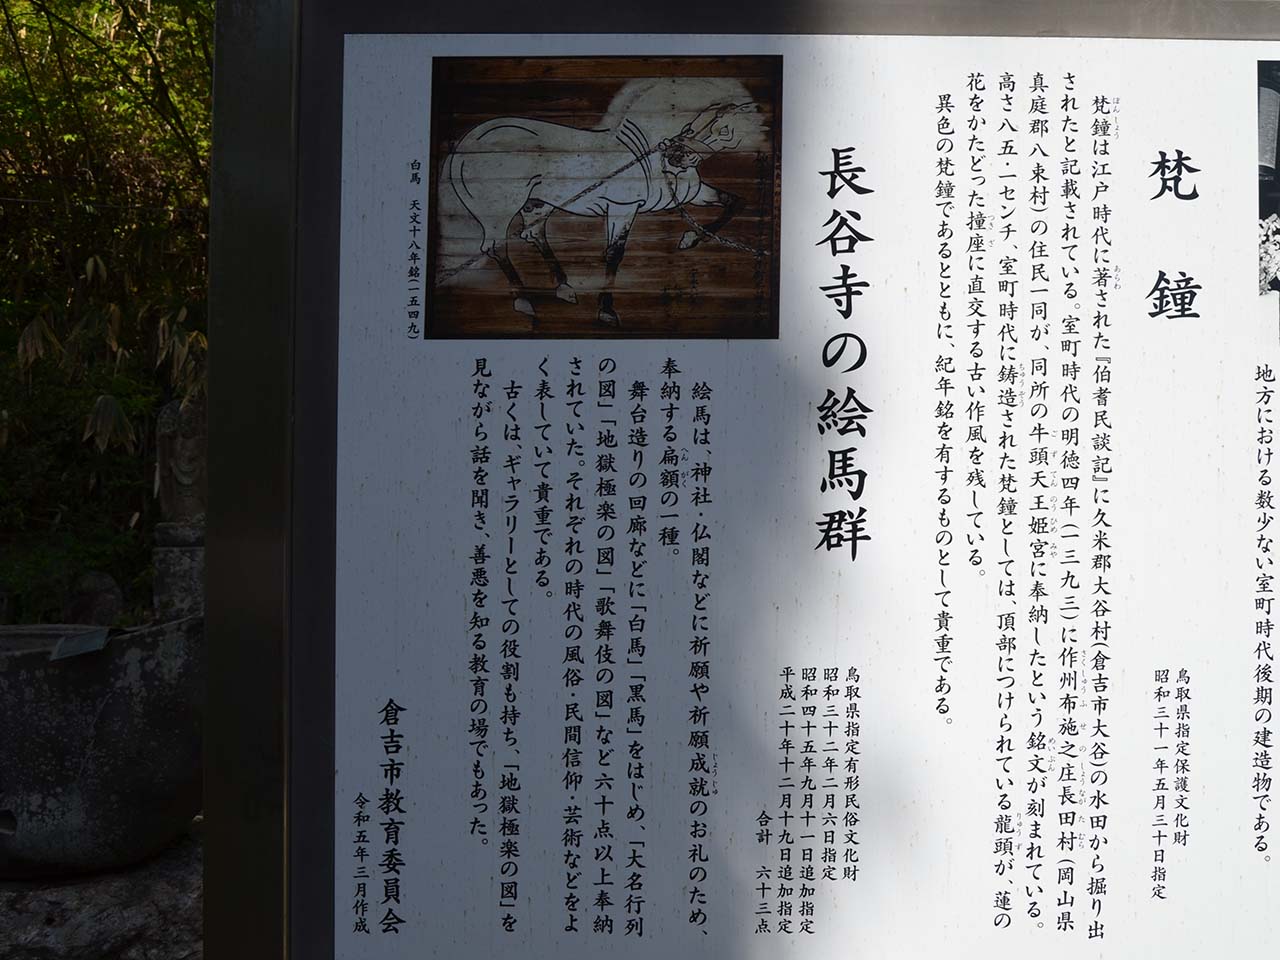 地方における数少ない室町時代後期の建造物である。
梵鐘
鳥取県指定保護文化財
昭和三十一年五月三十日指定
梵鐘は江戸時代に著された『伯耆民談記』に久米郡大谷村(倉吉市大谷)の水田から掘り出
されたと記載されている。室町時代の明徳四年(一三九三)に作州布施之庄長田村(岡山県
真庭郡八束村)の住民一同が、同所の牛頭天王姫宮に奉納したという銘文が刻まれている。
高さ八五・一センチ、室町時代に鋳造された梵鐘としては、頂部につけられている龍頭が、蓮の
花をかたどった撞座に直交する古い作風を残している。
異色の梵鐘であるとともに、紀年銘を有するものとして貴重である。
長谷寺の絵馬群
鳥取県指定有形民俗文化財
昭和三十二年二月六日指定
昭和四十五年九月十一日追加指定
平成二十年十二月十九日追加指定
合計 六十三点
絵馬は、神社・仏閣などに祈願や祈願成就のお礼のため、
奉納する扁額の一種。
舞台造りの回廊などに「白馬」「黒馬」をはじめ、「大名行列
の図」「地獄極楽の図」「歌舞伎の図」など六十点以上奉納
されていた。それぞれの時代の風俗・民間信仰・芸術などをよ
く表していて貴重である。
古くは、ギャラリーとしての役割も持ち、「地獄極楽の図」を
見ながら話を聞き、善悪を知る教育の場でもあった。
白馬 天文十八年銘(一五四九)
倉吉市教育委員会
令和五年三月作成